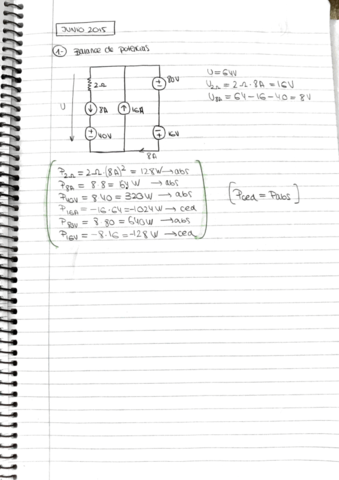 JUNIO 2015
1. Balance de potencias
2Ω
80V
U = 64V
U₂Ω = 2Ω · 8A = 16V
U₈A = 64 - 16 - 40 = 8V
U
8A
16A
40V
16V
8A
P₂Ω = 2Ω (8A)² = 128W → abs
P₈A = 8·8 = 64W → abs
P₄₀V = 8·40 = 320W → abs
P₁₆A = -16·64 = -1024W → ced
P₈₀V = 8·80 = 640W → abs
P₁₆V = -8·16 = -128W → ced
[Pced = Pabs]